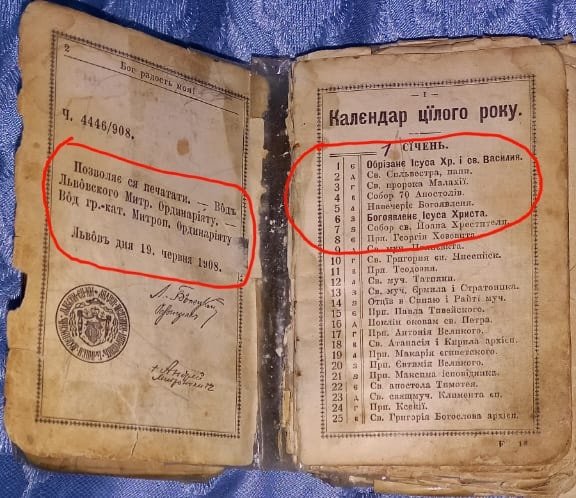 2
Бог радость моя!
Ч. 4446/908.
Позволяє ся печатати. — Вôдъ
Львôвского Митр. Ординаріяту. —
Вôд гр.-кат. Митроп. Ординаріяту
Львôвъ дня 19. червня 1908.
1
Калєндар цїлого року.
СІЧЕНЬ.
1 Обрізанє Ісуса Хр. і св. Василия.
2 Св. Сильвестра, папи.
3 Св. пророка Малахії.
4 Собор 70 Апостолів.
5 Навечеріє Богоявленя.
6 Богоявленє Ісуса Христа.
7 Собор св. Йоана Хрестителя.
8 Прп. Георгія Хововита.
9 Св. муч.
10 Св. Григория єп. Нисейск.
11 Прп. Теодозия.
12 Св. муч. Татияни.
13 Св. муч. Єрмила і Стратоника.
14 Отцїв в Синаю і Раїті муч.
15 Прп. Павла Тивейского.
16 Поклін оковам св. Петра.
17 Прп. Антонія Великого.
18 Св. Атанасія і Кирила архієп.
19 Прп. Макарія єгипетского.
20 Прп. Евтимія Великого.
21 Прп. Максима ісповідника.
22 Св. апостола Тимотея.
23 Св. свящмуч. Климента єп.
24 Прп. Ксенії.
25 Св. Григорія Богослова архієп.